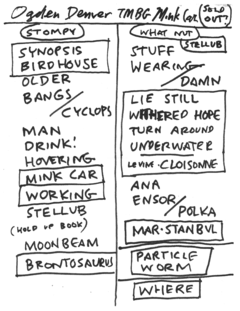 Ogden Denver TMBG Mink Car SOLD OUT!
STOMPY
SYNOPSIS
BIRDHOUSE
OLDER
BANGS
/CYCLOPS
MAN
DRINK!
HOVERING
MINK CAR
WORKING
STELLUB
(HOLD UP BOOK)
MOONBEAM
BRONTOSAURUS
WHAT NUT
STELLUB
STUFF
WEARING
/DAMN
LIE STILL
WITHERED HOPE
TURN AROUND
UNDERWATER
CLOISONNE
ANA
ENSOR
/POLKA
MAR·STANBUL
PARTICLE
WORM
WHERE